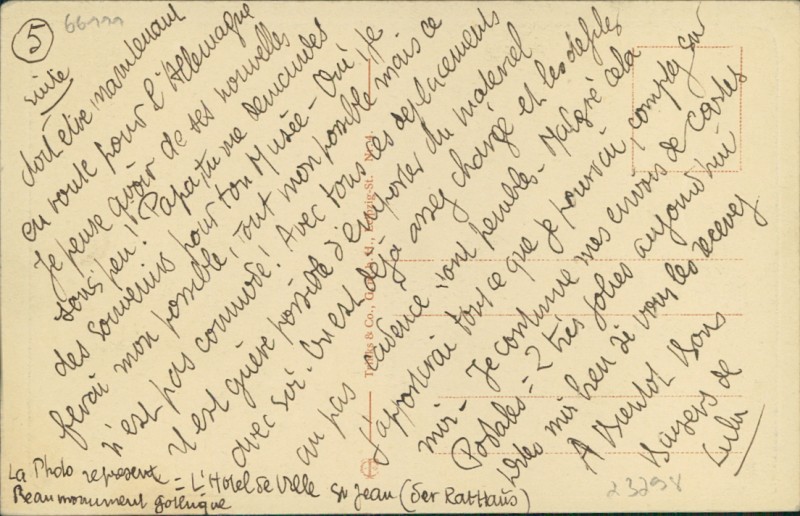 5
66
suite
doit être maintenant
en route pour l'Allemagne
Je pense avoir de ses nouvelles
sous peu! Papa, tu me demandes
des souvenirs pour ton Musée - Oui, je
ferai mon possible, tout mon possible mais ce
n'est pas commode! Avec tous ces déplacements
il est guère possible d'emporter du matériel
avec soi. On est déjà assez chargé et les défilés
au pas cadencé sont pénibles - Malgré cela
J'apporterai tout ce que je pourrai, comptez sur
moi - Je continue mes envois de cartes
Postales = 2 très jolies aujourd'hui
Dites moi bien si vous les recevez
A Bientot Bons
Baisers de
Lulu
La Photo représente = L'Hotel de Ville St Jean (der Rathaüs)
Beau monument gothique
23298